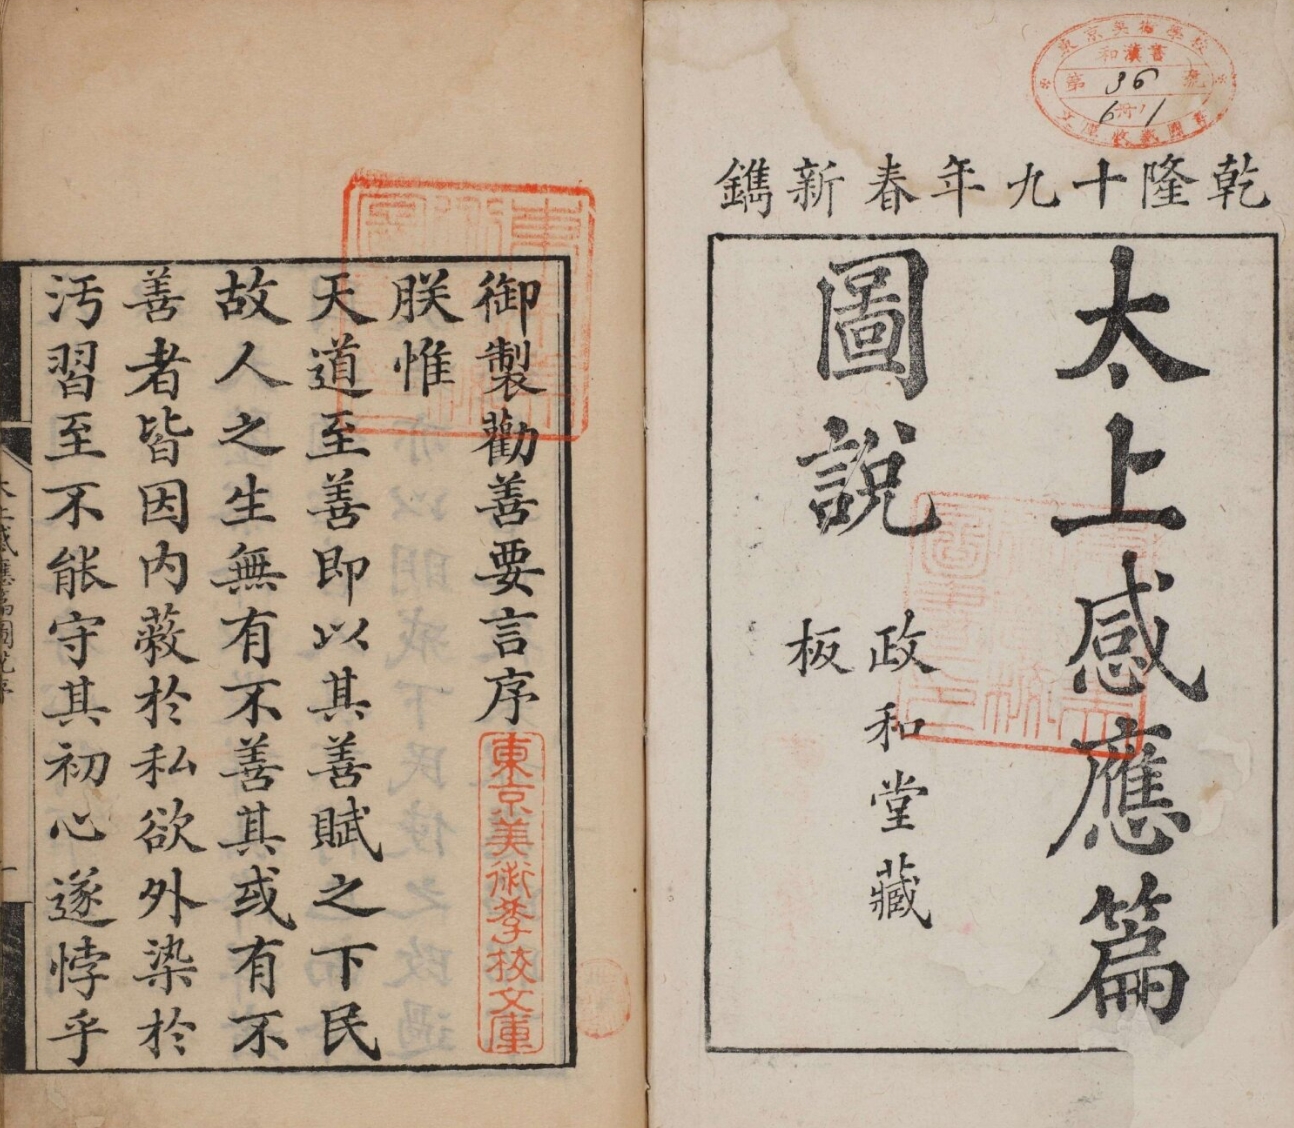 東京美術學校
和漢書
第36號
6冊ノ1
文庫收藏圖書
乾隆十九年春新鐫
太上感應篇
圖說
政和堂藏
板
御製勸善要言序
東京美術學校文庫
朕惟
天道至善即以其善賦之下民
故人之生無有不善其或有不
善者皆因內蔽於私欲外染於
汚習至不能守其初心遂悖乎
太上感應篇圖說序
一